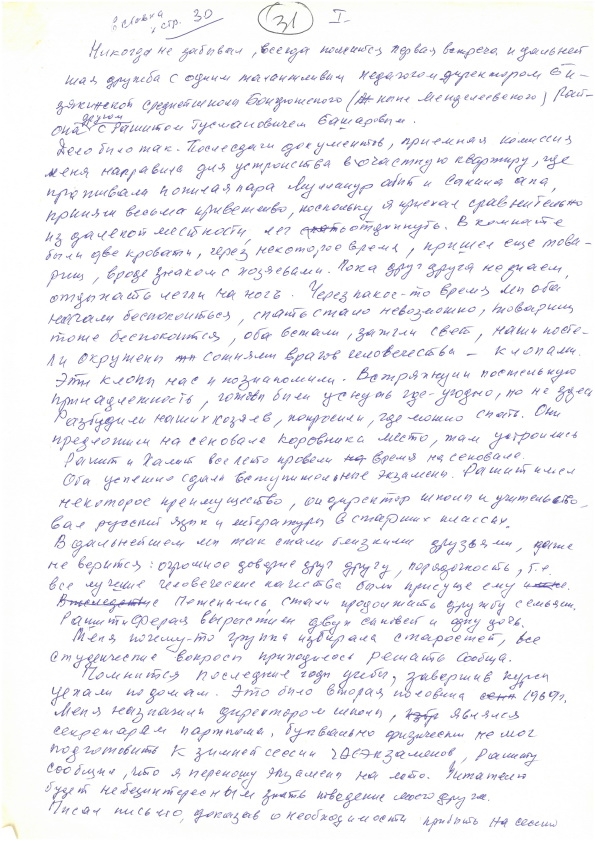 сноска, стр. 30
31 I.
Никогда не забывал, всегда помнится первая встреча и дальней
шая дружба с одним талантливым педагогом директором Би-
зякинской средней школы Бондюжского (ныне Менделеевского) Рай-
она другом с Рашитом Гусмановичем Башаровым.
Дело было так. После сдачи документов, приемная комиссия
меня направила для устройства в частную квартиру, где
проживала пожилая пара абый и Сакина апа,
приняли весьма приветливо, поскольку я приехал сравнительно
из далекой местности, лег отдохнуть. В комнате
были две кровати, через некоторое время, пришел еще това-
рищ, вроде знаком с хозяевами. Пока друг друга не знаем,
отдыхать легли на ночь. Через какое-то время мы оба
начали беспокоиться, спать стало невозможно, товарищ
тоже беспокоится, оба встали, зажгли свет, наши посте-
ли окружены сотнями врагов человечества – клопами.
Эти клопы нас и познакомили. Встряхнули постельную
принадлежность, готовы были уснуть где-угодно, но не здесь
Разбудили наших хозяев, попросили, где можно спать. Они
предложили на сеновале коровника место, там устроились
Рашит и Халит все лето провели время на сеновале.
Оба успешно сдали вступительные экзамены. Рашит имел
некоторое преимущество, он директор школы и учительство,
вал русский язык и литературу в старших классах.
В дальнейшем мы так стали близкими друзьями, даже
не верится: огромное доверие друг другу, порядочность, т.е.
все лучшие человеческие качества были присуще ему
Поженились, стали продолжать дружбу семьями.
Рашит Ферая вырастили двух сыновей и одну дочь.
Меня почему-то группа избирала старостой, все
студенческие вопросы приходилось решать сообща.
Помнится последние годы учебы, завершив курса
уехали по домам. Это было вторая половина 1969г.
Меня назначили директором школы, являлся
секретарем парткома. Буквально физически не мог
подготовить к зимней сессии экзаменов, Рашиту
сообщил, что я переношу экзамены на лето. Читателю
будет небезинтересным знать поведение моего друга.
Писал письмо, доказав о необходимости прибыть на сессию